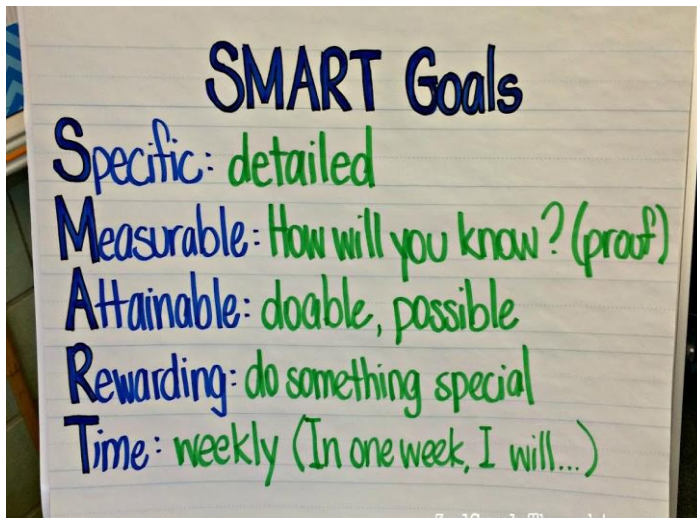 SMART Goals
Specific: detailed
Measurable: How will you know? (proof)
Attainable: doable, possible
Rewarding: do something special
Time: weekly (In one week, I will...)